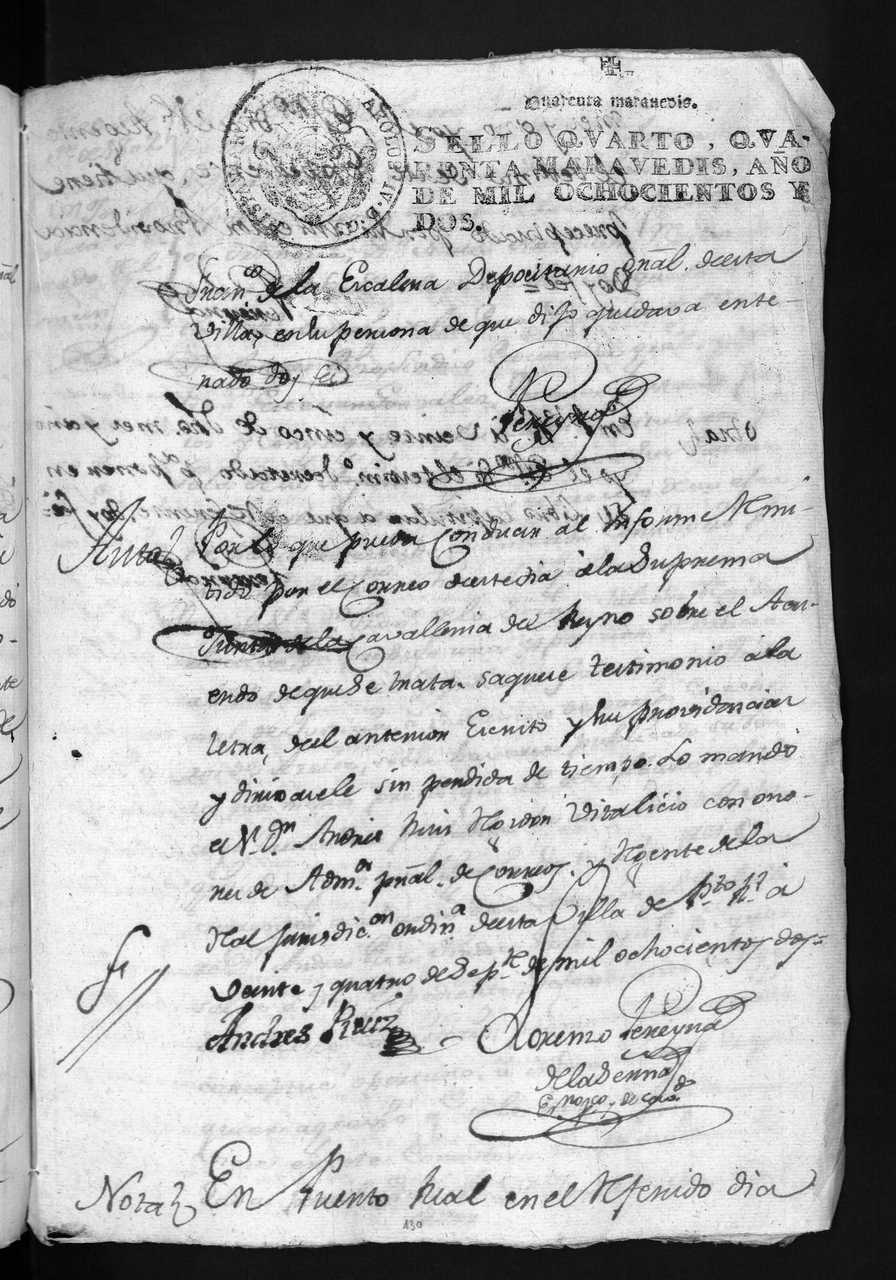 Quarenta maravedis.
SELLO QVARTO, QVA-
RENTA MARAVEDIS, AÑO
DE MIL OCHOCIENTOS Y
DOS.
CAROLUS IV D.G. HISPANIAR. REX
Fran.co de la Escalera Depocitario gñal. de esta
Villa, en su persona de que dijo quedava ente-
rado doy fee
Pereyra
Auto
Por lo que pueda conducir al Informe Remi-
tido por el Correo de este dia à la Suprema
Junta de la Cavalleria del Reyno sobre el Acu-
erdo de que se trata, saquese testimonio à la
letra, del anterior Escrito y sus providencias
y dirixasele sin perdida de tiempo. Lo mandò
el S.or Dn Andres Ruiz Rexidor Vitalicio con ono-
res de Adm.or pñal. de Correos, y Rgente de la
Rl jurisdic.on ordin.a de esta Villa de P.to R.l à
veinte y quatro de Sep.re de mil ochocientos dos=
Andres Ruiz
Lorenzo Pereyra
de la Serna
Es.no pp.co y de Cavo.
Nota
En Puerto Real en el Referido dia
130